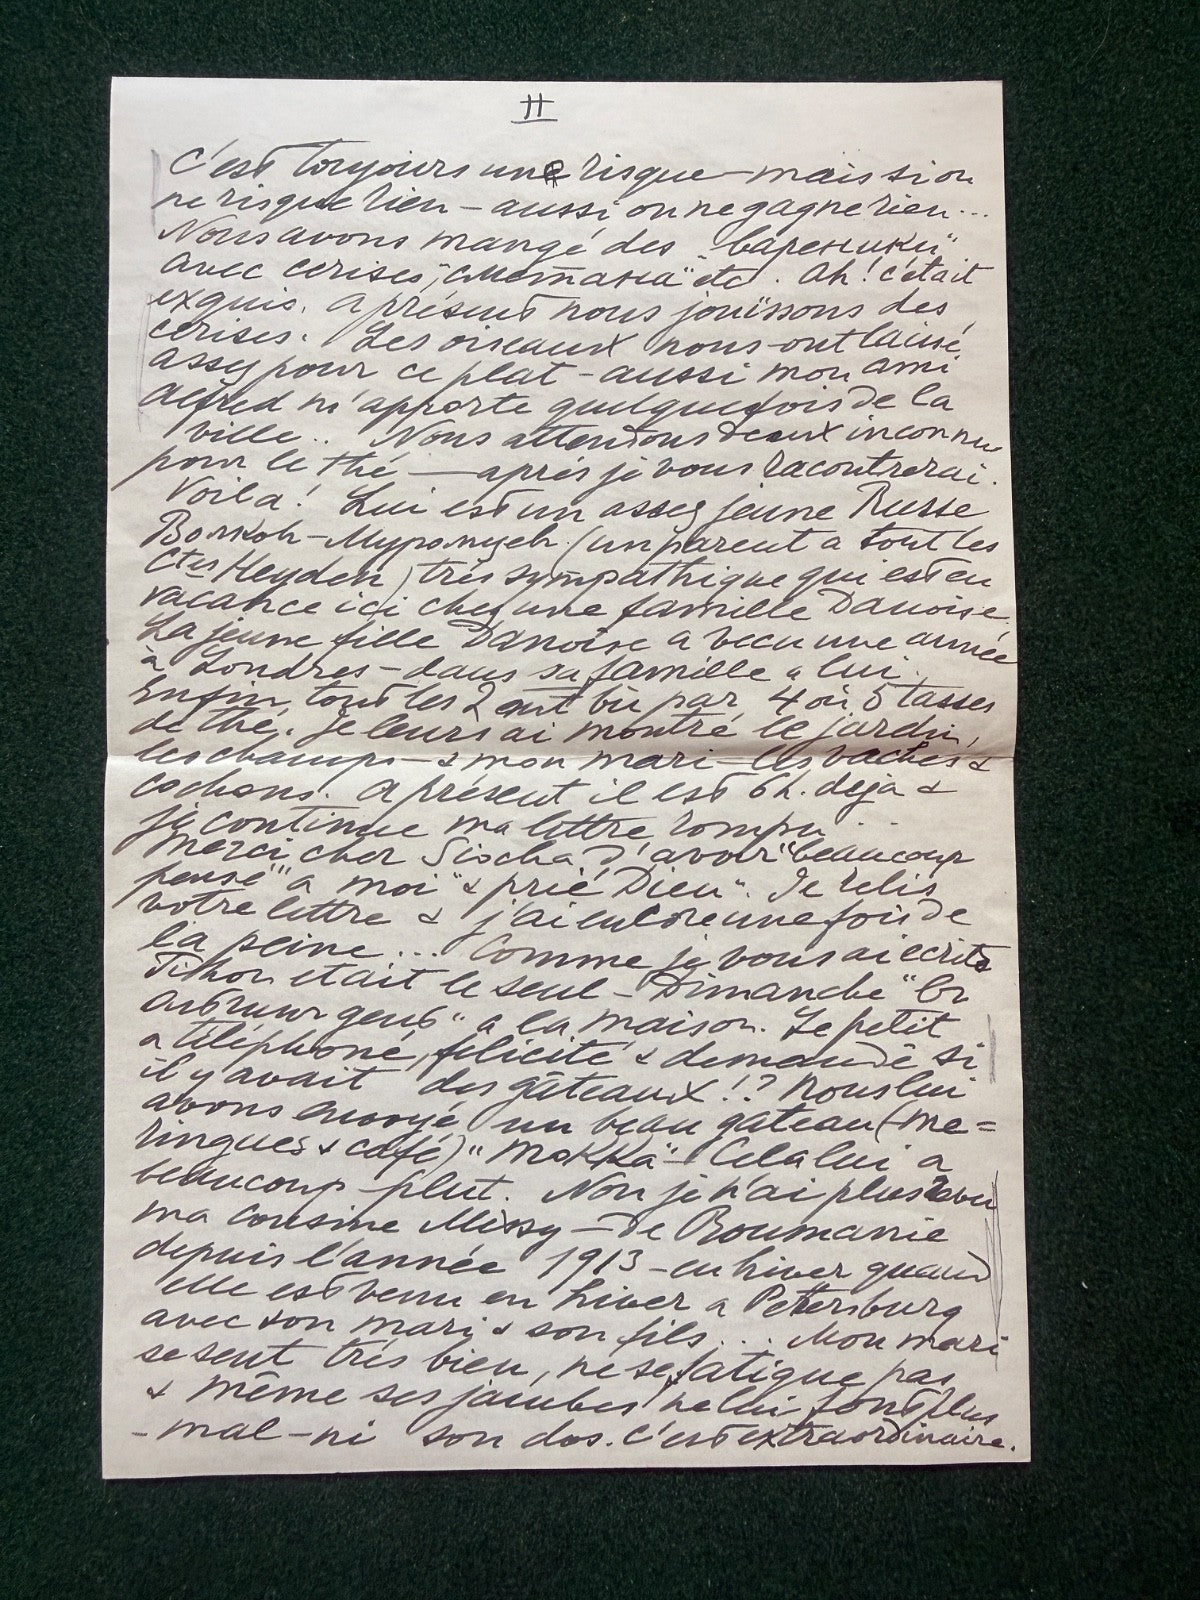 II
C'est toujours une risque – mais si on
ne risque rien – aussi on ne gagne rien...
Nous avons mangé des „вареники"
avec cerises, „сметана" etc. Ah! c'était
exquis. A présent nous jouissons des
cerises. Les oiseaux nous ont laissé
assez pour ce plat – aussi mon ami
Alfred m'apporte quelquefois de la
ville.. Nous attendons deux inconnus
pour le thé — après je vous racontrerai.
Voila! Lui est un assez jeune Russe
(un parent a tout les
Ctes Heyden) très sympathique qui est en
vacance ici chez une famille Danoise.
La jeune fille Danoise a vecu une année
à Londres – dans sa famille a lui.
Enfin, tout les 2 ont bu par 4 où 5 tasses
de thé. Je leurs ai montré le jardin,
les champs – & mon mari – les vaches &
cochons. A présent il est 6 h. deja &
je continue ma lettre rompu..
Merci, cher Sischa, d'avoir "beaucoup
pensé" a moi "& prié Dieu". Je relis
votre lettre & j'ai encore une fois de
la peine... Comme je vous ai ecrite
Tihon etait le seul – Dimanche "
" a la maison. Le petit
a téléphoné, félicité & demandé si
il y avait des gâteaux!? Nous lui
avons envoyé un beau gateau (me=
ringues & café) "Mokka" – Cela lui a
beaucoup plut. Non je n'ai plus revu
ma cousine Missy – de Roumanie
depuis l'année 1913 – en hiver quand
elle est venu en hiver a Petersburg
avec son mari & son fils... Mon mari
se sent très bien, ne se fatigue pas
& même ses jambes ne lui font plus
– mal – ni son dos. C'est extraordinaire.